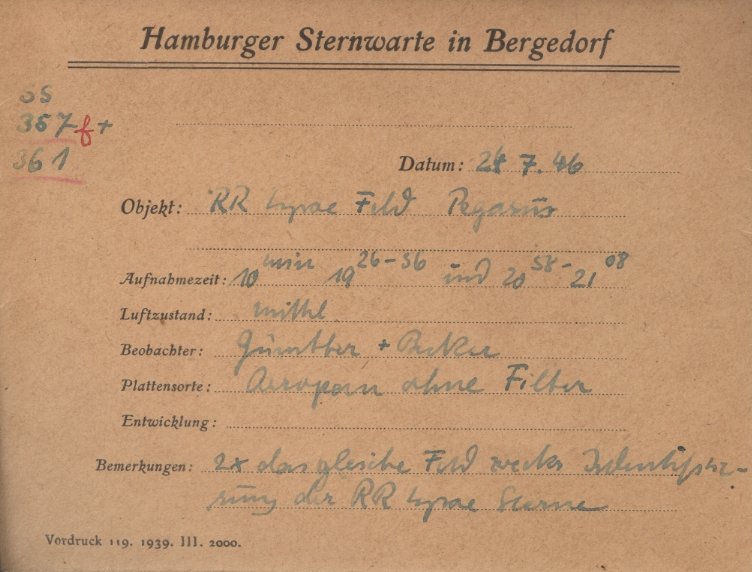 Hamburger Sternwarte in Bergedorf
SS
357 f +
361
Datum: 28 7. 46
Objekt: RR Lyrae Feld Pegasus
Aufnahmezeit: 10 min 19 26-36 und 20 58 - 21 08
Luftzustand: mittel
Beobachter: Günther + Becker
Plattensorte: Aeropan ohne Filter
Entwicklung:
Bemerkungen: 2x das gleiche Feld zwecks Identifizie-
rung der RR Lyrae Sterne
Vordruck 119. 1939. III. 2000.